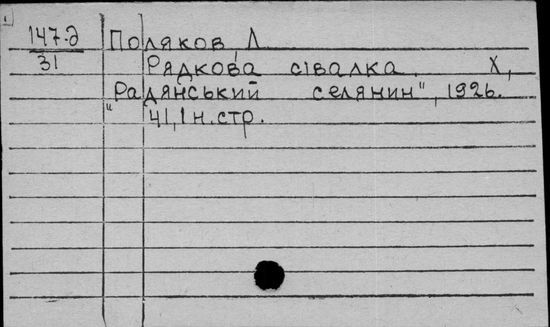 147-д Поляков, Л
31 Рядкова сівалка. Х,
"Радянський селянин", 1926.
41, 1 н. стр.